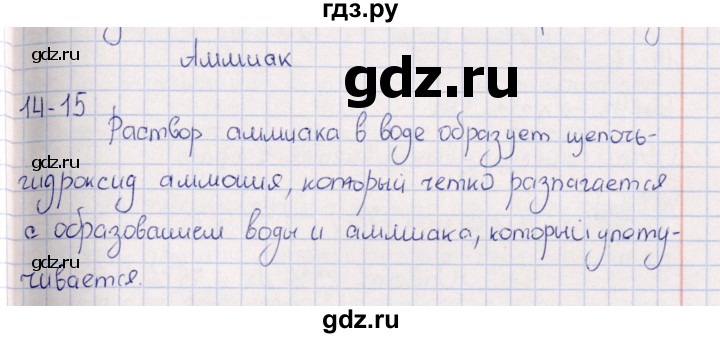 гдз.ру
gdz.ru
gdz.ru
Аммиак
gdz.ru
14-15 Раствор аммиака в воде образует щелочь-
gdz.ru
gdz.ru
гидроксид аммония, который четко разлагается
с образованием воды и аммиака, который улету-
gdz.ru
gdz.ru
чивается.
gdz.ru